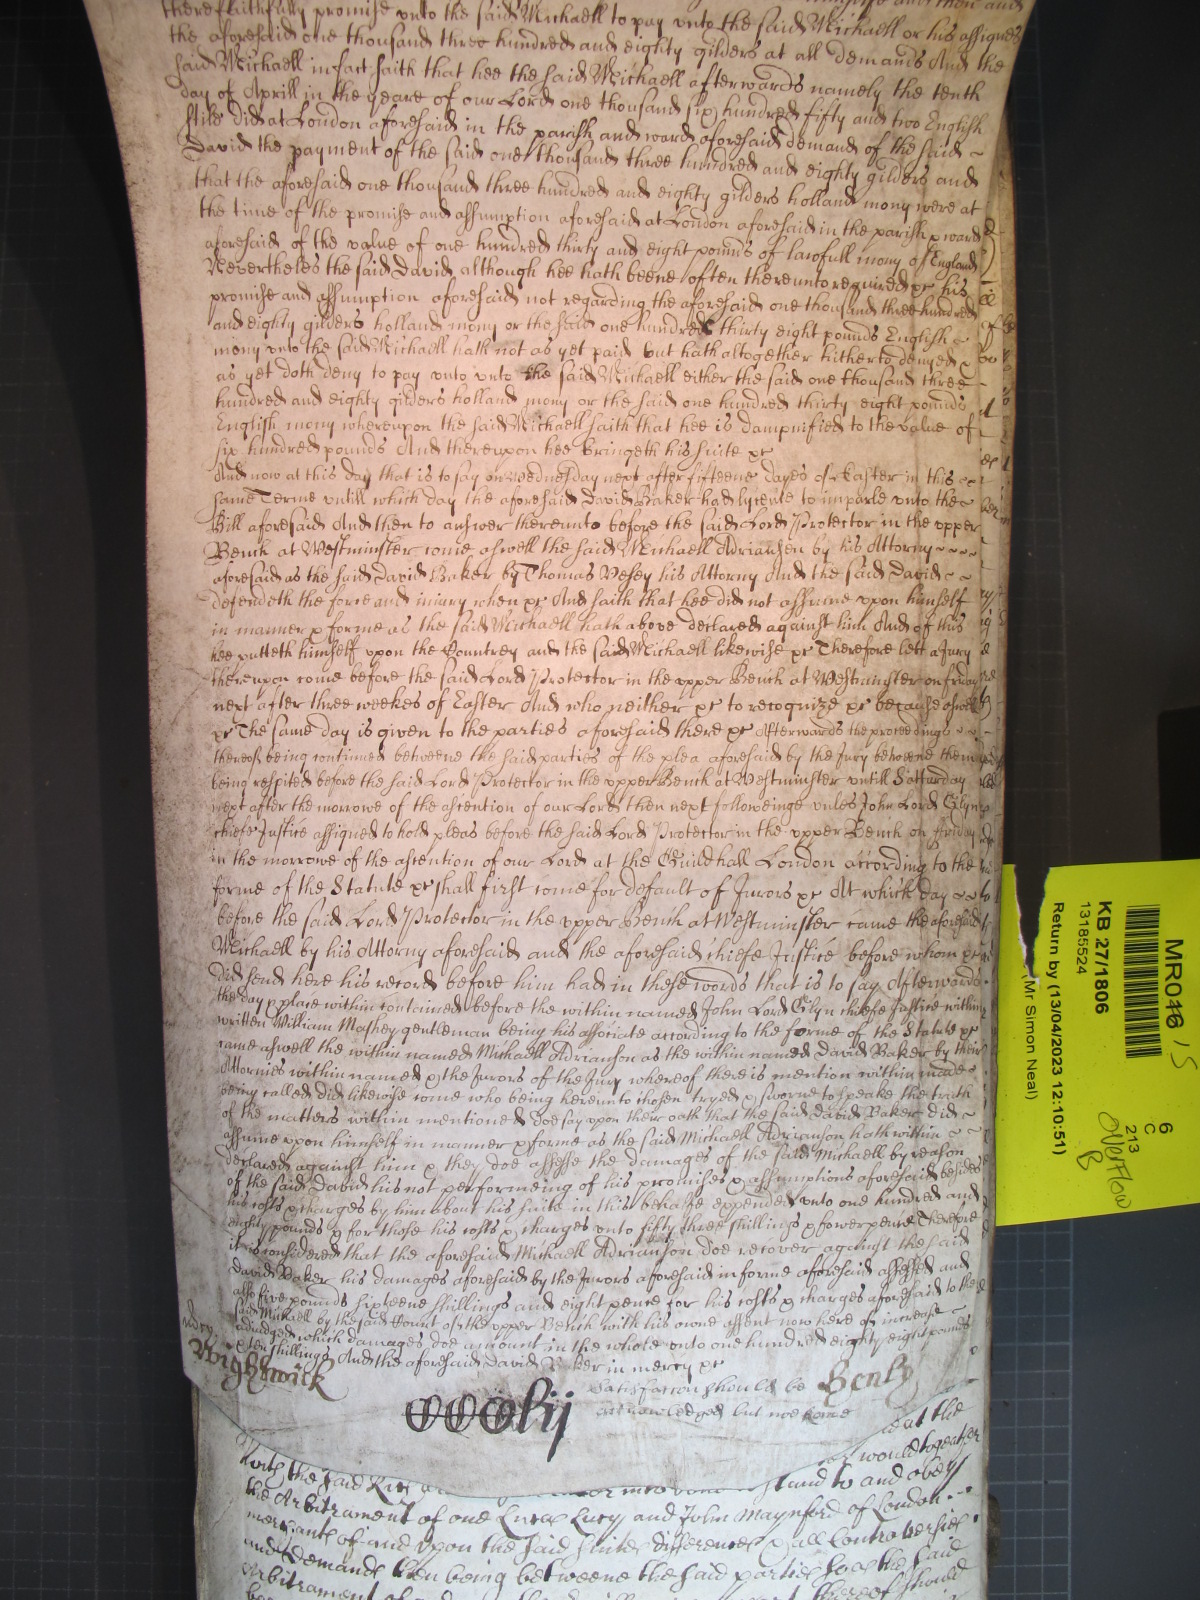 therefaithfully promise vnto the said Michaell to pay vnto the said Michaell or his assignes
the aforesaid one thousand three hundred and eighty gilders at all demands And the
said Michaell infact saith that hee the said Michaell afterwards namely the tenth
day of Aprill in the yeare of our Lord one thousand six hundred fifty and two English
stile did at London aforesaid in the parish and ward aforesaid demand of the said
David the payment of the said one thousand three hundred and eighty gilders and
that the aforesaid one thousand three hundred and eighty gilders holland mony were at
the time of the promise and assumption aforesaid at London aforesaid in the parish & ward
aforesaid of the value of one hundred thirty and eight pounds of lawfull mony of England
Nevertheles the said David although hee hath beene often therevnto required &c his
promise and assumption aforesaid not regarding the aforesaid one thousand three hundred
and eighty gilders holland mony or the said one hundred thirty eight pounds English
mony vnto the said Michaell hath not as yet paid but hath altogether hitherto denyed &
as yet doth deny to pay vnto vnto the said Michaell either the said one thousand three
hundred and eighty gilders holland mony or the said one hundred thirty eight pounds
English mony wherevpon the said Michaell saith that hee is dampnified to the value of
six hundred pounds And therevpon hee bringeth his suite &c
And now at this day that is to say on Wednesday next after fifteene dayes of Easter in this
same Terme vntill which day the aforesaid David Baker had lycence to imparle vnto the
Bill aforesaid And then to answer therevnto before the said Lord Protector in the vpper
Bench at Westminster come aswell the said Michaell Adriansen by his Attorny
aforesaid as the said David Baker by Thomas Vesey his Attorny And the said David
defendeth the force and iniury when &c And saith that hee did not assume vpon himself
in manner & forme as the said Michaell hath above declared against him And of this
hee putteth himself vpon the Countrey and the said Michaell likewise &c Therefore lett a Jury
therevpon come before the said Lord Protector in the vpper Bench at Westminster on friday
next after three weekes of Easter And who neither &c to recognize &c because aswell
&c The same day is given to the parties aforesaid there &c Afterwards the proceedings
thereof being continued betweene the said parties of the plea aforesaid by the Jury betweene them
being respited before the said Lord Protector in the vpper Bench at Westminster vntill Satturday
next after the morrowe of the ascention of our Lord then next followeinge vnles John Lord Glyn
chiefe Justice assigned to hold pleas before the said Lord Protector in the vpper Bench on friday
in the morrowe of the ascention of our Lord at the Guildhall London according to the
forme of the Statute &c shall first come for default of Jurors &c At which day
before the said Lord Protector in the vpper Bench at Westminster came the aforesaid
Michaell by his Attorny aforesaid and the aforesaid chiefe Justice before whom &c
did send here his record before him had in these words that is to say Afterwards
the day & place within contained before the within named John Lord Glyn chiefe Justice within
written William Maskey gentleman being his associate according to the forme of the Statute &c
came aswell the within named Michaell Adrianson as the within named David Baker by their
Attornies within named & the Jurors of the Jury whereof there is mention within made
being called did likewise come who being herevnto chosen tryed & sworne to speake the truth
of the matters within mentioned doe say vpon their oath that the said David Baker did
assume vpon himself in manner & forme as the said Michaell Adrianson hath within
declared against him & they doe assesse the damages of the said Michaell by reason
of the said David his not performeing of his promises & assumptions aforesaid besides
his costs & charges by him about his suite in this behalfe expended vnto one hundred and
eighty pounds & for those his costs & charges vnto fifty three shillings & fowerpence Therefore
it is considered that the aforesaid Michaell Adrianson doe recover against the said
David Baker his damages aforesaid by the Jurors aforesaid in forme aforesaid assessed and
also five pounds sixteene shillings and eight pence for his costs & charges aforesaid to the
said Michaell by the said Court of the vpper Bench with his owne assent now here of increase
adiudged which damages doe amount in the whole vnto one hundred eighty eight pounds
& ten shillings And the aforesaid David Baker in mercy &c
mercy
Wightwick
Satisfaction should be
acknowledged but not
at the
would together
with the said
stand to and obey
the Arbitrament of one Lucas Lucy and John Maynford of London
merchants of and vpon the said suites differences & all Controversies
and Demands then being betweene the said parties soe as the said
Arbitrament
thereof should
MR046 15
6
C
213
Overflow
B
KB 27/1806
13185524
Return by (13/04/2023 12:10:51)
(Mr Simon Neal)